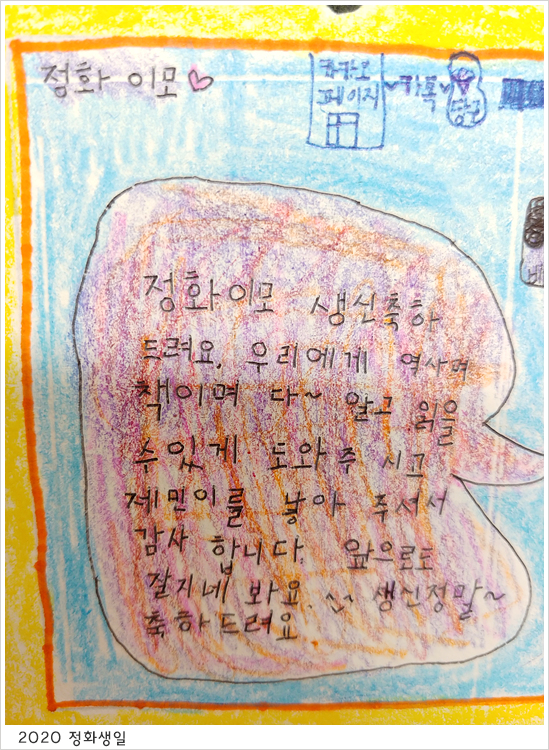 정화 이모♡
카카오
페이지
카톡
정화이모 생신축하
드려요. 우리에게 역사며
책이며 다~ 알고 읽을
수있게 도와주시고
제민이를 낳아 주셔서
감사 합니다. 앞으로도
잘지네 봐요. ^^ 생신정말~
축하드려요
2020 정화생일